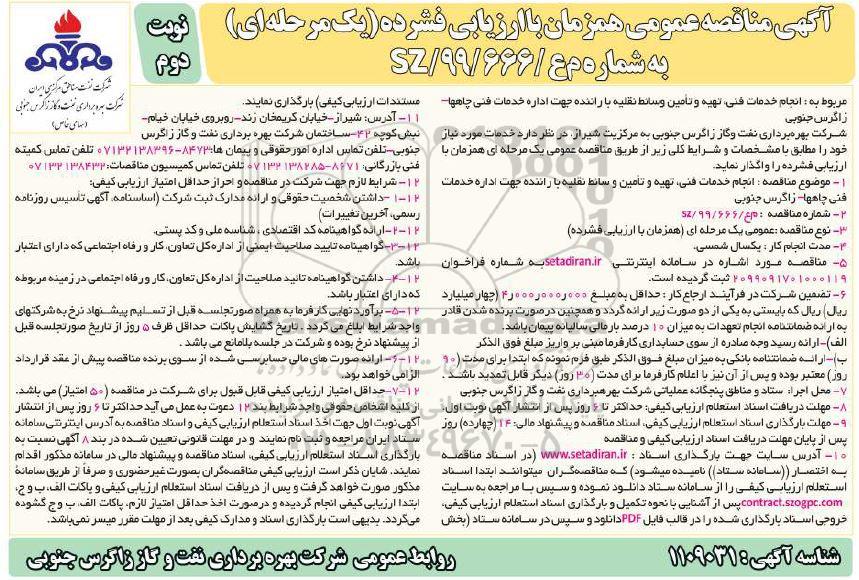 آگهی مناقصه عمومی همزمان با ارزیابی فشرده (یک مرحله ای)
به شماره م ع /SZ/۹۹/۶۶۶
نوبت
دوم
شرکت نفت مناطق مرکزی ایران
شرکت بهره برداری نفت و گاز زاگرس جنوبی
(سهامی خاص)
مربوط به : انجام خدمات فنی، تهیه و تأمین وسائط نقلیه با راننده جهت اداره خدمات فنی چاهها-
زاگرس جنوبی
شرکت بهره‌برداری نفت وگاز زاگرس جنوبی به مرکزیت شیراز، در نظر دارد خدمات مورد نیاز
خود را مطابق با مشخصات و شرایط کلی زیر از طریق مناقصه عمومی یک مرحله ای همزمان با
ارزیابی فشرده را واگذار نماید.
۱- موضوع مناقصه : انجام خدمات فنی، تهیه و تأمین و سائط نقلیه با راننده جهت اداره خدمات
فنی چاهها- زاگرس جنوبی
۲- شماره مناقصه : م ع/۹۹/۶۶۶/sz
۳- نوع مناقصه :عمومی یک مرحله ای (همزمان با ارزیابی فشرده)
۴- مدت انجام کار : یکسال شمسی.
۵- مناقصه مورد اشاره در سامانه اینترنتی setadiran.ir به شماره فراخوان
۲۰۹۹۰۹۱۷۰۱۰۰۰۱۱۹ ثبت گردیده است.
۶- تضمین شرکت در فرآیند ارجاع کار : حداقل به مبلغ ۴٫۰۰۰٫۰۰۰٫۰۰۰ (چهار میلیارد
ریال) ریال که بایستی به یکی از دو صورت زیر ارائه گردد و همچنین در صورت برنده شدن قادر
به ارائه ضمانتنامه انجام تعهدات به میزان ۱۰ درصد بار مالی سالیانه پیمان باشد.
الف)- ارائه رسید وجه صادره از سوی حسابداری کارفرما مبنی بر واریز مبلغ فوق الذکر
ب)- ارائه ضمانتنامه بانکی به میزان مبلغ فوق الذکر طبق فرم نمونه که ابتدا برای مدت (۹۰
روز) معتبر بوده و پس از آن نیز با اعلام کارفرما برای مدت (۳۰ روز) دیگر قابل تمدید باشد.
۷- محل اجرا: ستاد و مناطق پنجگانه عملیاتی شرکت بهرهبرداری نفت و گاز زاگرس جنوبی
۸- مهلت دریافت اسناد استعلام ارزیابی کیفی: حداکثر تا ۶ روز پس از انتشار آگهی نوبت اول.
۹- مهلت بارگذاری اسناد استعلام ارزیابی کیفی، اسناد مناقصه و پیشنهاد مالی: ۱۴ (چهارده) روز
پس از پایان مهلت دریافت اسناد ارزیابی کیفی و مناقصه
۱۰- آدرس سایت جهت بارگذاری اسناد : www.setadiran.ir (در اسناد مناقصه
به اختصار ((سامانه ستاد)) نامیده میشود) که مناقصه‌گران میتوانند ابتدا اسناد
استعلام ارزیابی کیفی را از سامانه ستاد دانلود نموده و سپس با مراجعه به سایت
contract.szogpc.com پس از آشنایی با نحوه تکمیل و بارگذاری اسناد استعلام ارزیابی کیفی،
خروجی اسناد بارگذاری شده را در قالب فایل PDF دانلود و سپس در سامانه ستاد (بخش
مستندات ارزیابی کیفی) بارگذاری نمایند.
۱۱- آدرس: شیراز-خیابان کریمخان زند-روبروی خیابان خیام-
نبش کوچه ۴۲-ساختمان شرکت بهره برداری نفت و گاز زاگرس
جنوبی-تلفن تماس اداره امور حقوقی و پیمان ها: ۸۴۷۳-۰۷۱۳۲۱۳۸۳۹۶ تلفن تماس کمیته
فنی بازرگانی: ۸۶۷۱-۰۷۱۳۲۱۳۸۲۸۵ تلفن تماس کمیسیون مناقصات: ۰۷۱۳۲۱۳۸۴۳۲
۱۲- شرایط لازم جهت شرکت در مناقصه و احراز حداقل امتیاز ارزیابی کیفی:
۱-۱۲- داشتن شخصیت حقوقی و ارائه مدارک ثبت شرکت (اساسنامه، آگهی تأسیس روزنامه
رسمی، آخرین تغییرات)
۲-۱۲-ارائه گواهینامه کد اقتصادی ، شناسه ملی و کد پستی.
۳-۱۲-گواهینامه تایید صلاحیت ایمنی از اداره کل تعاون، کار و رفاه اجتماعی که دارای اعتبار
باشد.
۴-۱۲- داشتن گواهینامه تائید صلاحیت از اداره کل تعاون، کار و رفاه اجتماعی در زمینه مربوطه
که دارای اعتبار باشد.
۵-۱۲- برآورد نهایی کارفرما به همراه صورتجلسه قبل از تسلیم پیشنهاد نرخ به شرکتهای
واجد شرایط ابلاغ می گردد . تاریخ گشایش پاکات حداکثر ظرف ۵ روز از تاریخ صورتجلسه قبل
از پیشنهاد نرخ بوده و شرکت در جلسه بلامانع می باشد .
۶-۱۲- ارائه صورت های مالی حسابرسی شده از سوی برنده مناقصه پیش از عقد قرارداد
الزامی خواهد بود.
۷-۱۲-حداقل امتیاز ارزیابی کیفی قابل قبول برای شرکت در مناقصه (۵۰ امتیاز) می باشد.
از کلیه اشخاص حقوقی واجد شرایط بند ۱۲ دعوت به عمل می آید حداکثر تا ۶ روز پس از انتشار
آگهی نوبت اول جهت اخذ اسناد استعلام ارزیابی کیفی و اسناد مناقصه به آدرس اینترنتی سامانه
ستاد ایران مراجعه و ثبت نام نمایند و در مهلت قانونی تعیین شده در بند ۸ آگهی نسبت به
بارگذاری اسناد استعلام ارزیابی کیفی، اسناد مناقصه و پیشنهاد مالی در سامانه مذکور اقدام
نمایند. شایان ذکر است ارزیابی کیفی مناقصه‌گران بصورت غیرحضوری و صرفاً از طریق سامانهٔ
مذکور صورت خواهد گرفت و پس از دریافت اسناد استعلام ارزیابی کیفی و پاکات الف، ب و ج،
ابتدا ارزیابی کیفی انجام گردیده و درصورت اخذ حداقل امتیاز لازم، پاکات الف، ب و ج گشوده
می‌گردد. بدیهی است بارگذاری اسناد و مدارک کیفی بعد از مهلت مقرر میسر نمی‌باشد.
شناسه آگهی : ۱۱۰۹۰۳۱
روابط عمومی شرکت بهره برداری نفت و گاز زاگرس جنوبی